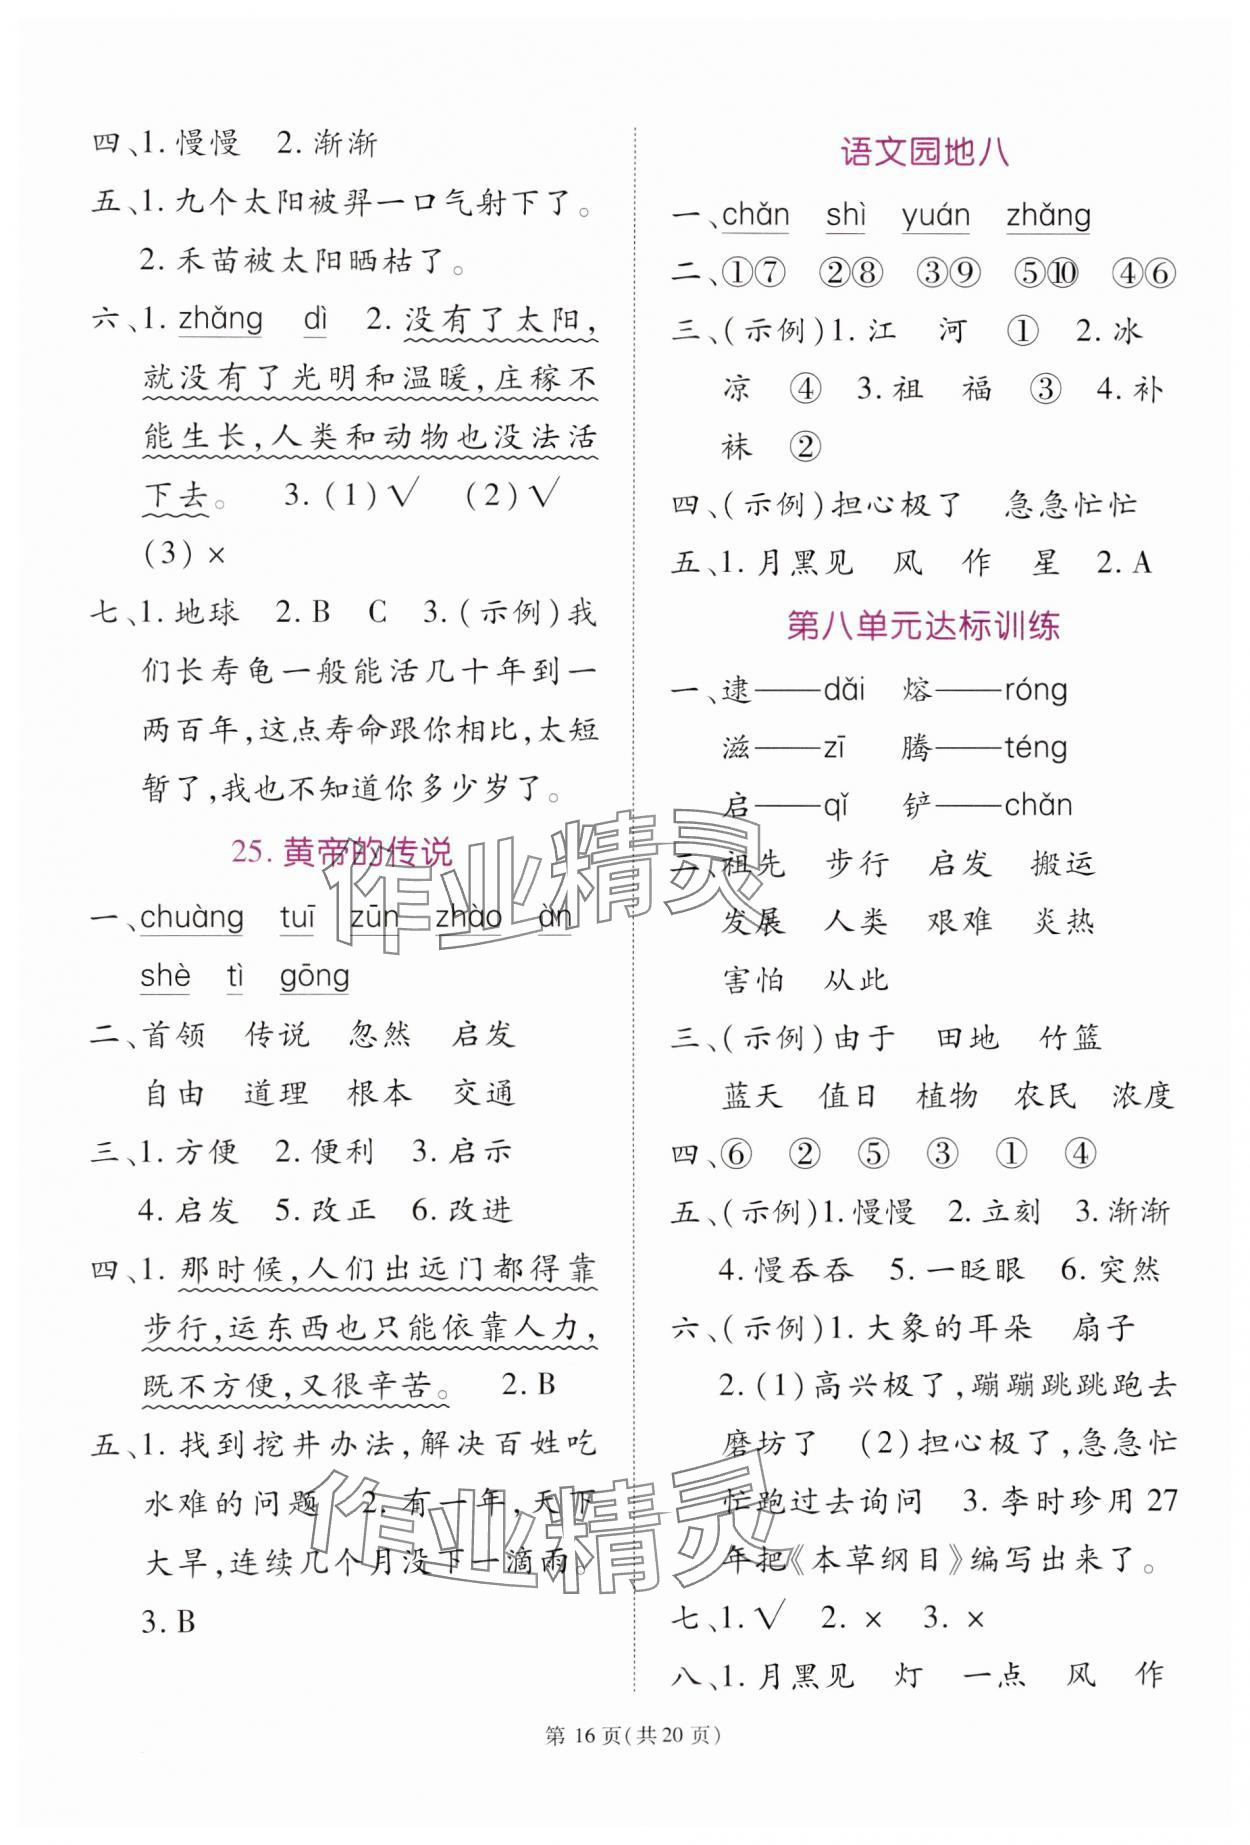 四、1. 慢慢 2. 渐渐
五、1. 九个太阳被羿一口气射下了。
2. 禾苗被太阳晒枯了。
六、1. zhǎng dì 2. 没有了太阳,
就没有了光明和温暖,庄稼不
能生长,人类和动物也没法活
下去。 3. (1)√ (2)√
(3)×
七、1. 地球 2. B C 3. (示例)我
们长寿龟一般能活几十年到一
两百年,这点寿命跟你相比,太短
暂了,我也不知道你多少岁了。
25. 黄帝的传说
一、chuàng tuī zūn zhào àn
shè tì gōng
二、首领 传说 忽然 启发
自由 道理 根本 交通
三、1. 方便 2. 便利 3. 启示
4. 启发 5. 改正 6. 改进
四、1. 那时候,人们出远门都得靠
步行,运东西也只能依靠人力,
既不方便,又很辛苦。 2. B
五、1. 找到挖井办法,解决百姓吃
水难的问题 2. 有一年,天下
大旱,连续几个月没下一滴雨。
3. B
语文园地八
一、chǎn shì yuán zhǎng
二、①⑦ ②⑧ ③⑨ ⑤⑩ ④⑥
三、(示例)1. 江 河 ① 2. 冰
凉 ④ 3. 祖 福 ③ 4. 补
袜 ②
四、(示例)担心极了 急急忙忙
五、1. 月黑见 风 作 星 2. A
第八单元达标训练
一、逮——dǎi 熔——róng
滋——zī 腾——téng
启——qǐ 铲——chǎn
二、祖先 步行 启发 搬运
发展 人类 艰难 炎热
害怕 从此
三、(示例)由于 田地 竹篮
蓝天 值日 植物 农民 浓度
四、⑥ ② ⑤ ③ ① ④
五、(示例)1. 慢慢 2. 立刻 3. 渐渐
4. 慢吞吞 5. 一眨眼 6. 突然
六、(示例)1. 大象的耳朵 扇子
2. (1)高兴极了,蹦蹦跳跳跑去
磨坊了 (2)担心极了,急急忙
忙跑过去询问 3. 李时珍用27
年把《本草纲目》编写出来了。
七、1. √ 2. × 3. ×
八、1. 月黑见 灯 一点 风 作
第 16 页(共 20 页)
作业精灵
作业精灵